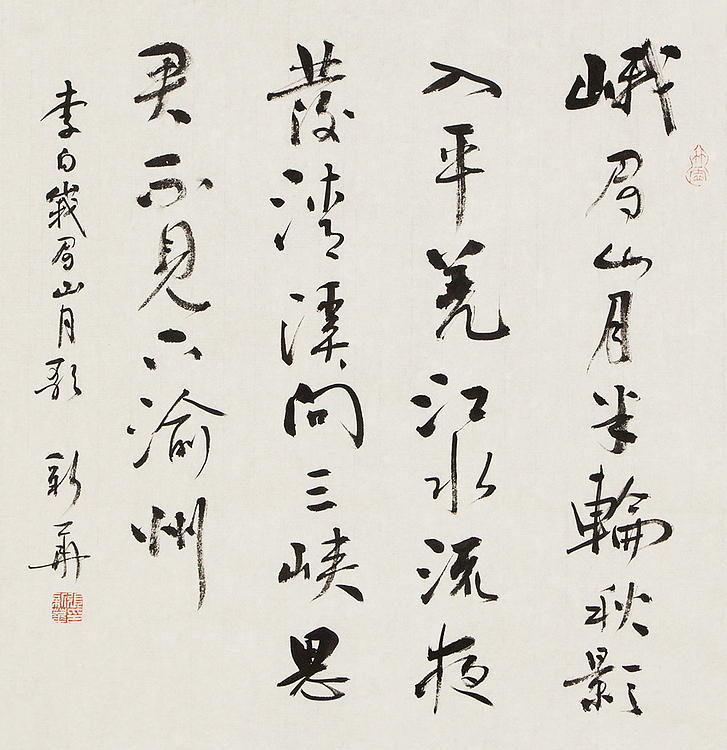 峨眉山月半輪秋影
入平羌江水流夜
發清溪向三峽思
君不見下渝州
李白峩眉山月歌 新華